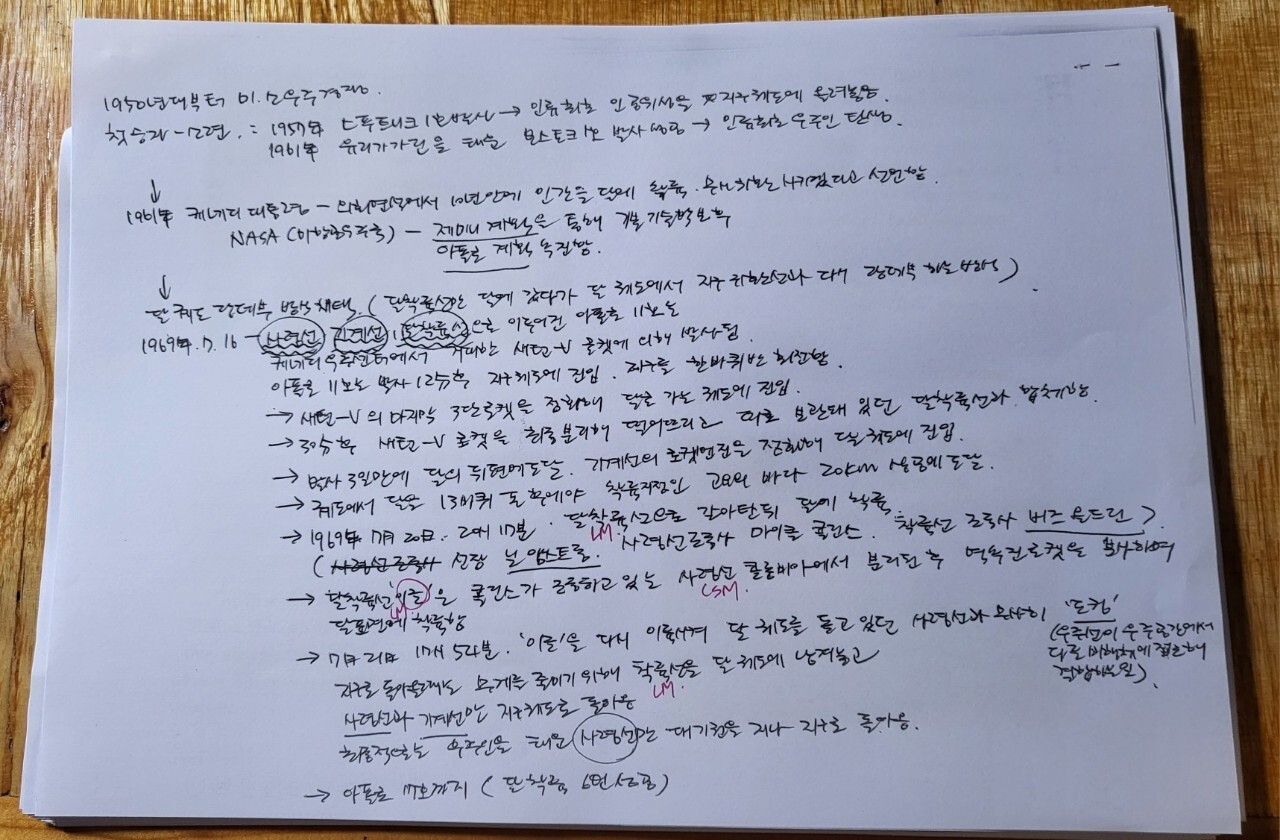 1950년대부터 미.소우주경쟁.
첫승자 - 소련. : 1957年 스푸트니크 1호발사 → 인류최초 인공위성을 지구궤도에 올려놓음.
1961年 유리가가린을 태운 보스토크 1호 발사 성공 → 인류최초 우주인 탄생.
↓
1961年 케네디 대통령 - 의회연설에서 10년안에 인간을 달에 착륙. 무사귀환 시키겠다고 선언함.
NASA (미항공우주국) - 제미니 계획을 통해 기본기술확보후
아폴로 계획 추진함.
↓
달 궤도 랑데부 방식 채택. (달착륙선만 달에 갔다가 달 궤도에서 지구 귀환선과 다시 랑데부 하는 방식)
1969年.7.16 - 사령선 기계선 달착륙선으로 이루어진 아폴로 11호는
케네디 우주센터에서 거대한 새턴-V 로켓에 의해 발사됨
아폴로 11호는 발사 12분후 지구궤도에 진입. 지구를 한바퀴반 회전함.
→ 새턴-V의 마지막 3단로켓을 점화해 달로 가는 궤도에 진입.
→ 30분후 새턴-V 로켓을 최종분리해 떨어뜨리고 따로 보관돼 있던 달착륙선과 합체함.
→ 발사 3일만에 달의 뒤편에 도달. 기계선의 로켓엔진을 점화해 달 궤도에 진입.
→ 궤도에서 달을 13바퀴 돈 후에야 착륙지점인 고요의 바다 20km 상공에 도달.
→ 1969年 7月 20日. 20시 17분. 달착륙선으로 갈아탄뒤 달에 착륙.
LM
(사령선조종사 선장 닐 암스트롱. 사령선조종사 마이클 콜린스. 착륙선 조종사 버즈 올드린).
→ 달착륙선 '이글'은 콜린스가 조종하고 있는 사령선 콜롬비아에서 분리된 후 역추진로켓을 분사하며
LM CSM.
달표면에 착륙함
→ 7月 21日 17시 54분. '이글'을 다시 이륙시켜 달 궤도를 돌고 있던 사령선과 무사히 '도킹'
(우주선이 우주공간에서
다른 비행체에 접근해
결합하는 일).
지구로 돌아올때는 무게를 줄이기 위해 착륙선을 달 궤도에 남겨놓고
LM.
사령선과 기계선만 지구궤도로 돌아옴
최종적으로는 우주인을 태운 사령선만 대기권을 지나 지구로 돌아옴.
→ 아폴로 17호까지 (달착륙 6번 성공)